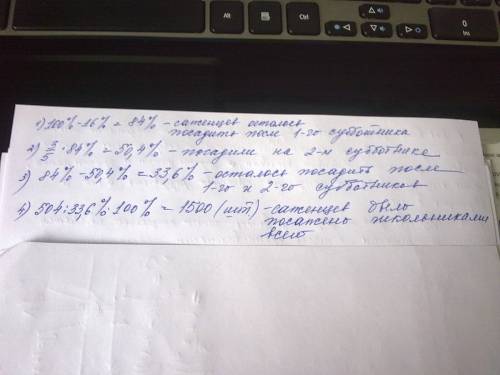 Alt
Ctrl
0
Ins
1) 100% - 16% = 84% - саженцев осталось
посадить после 1-го субботника
2) 3/5 · 84% = 50,4% - посадили на 2-м субботнике
3) 84% - 50,4% = 33,6% - осталось посадить после
1-го и 2-го субботников
4) 504 : 33,6% · 100% = 1500 (шт) - саженцев было
посажено школьниками
всего